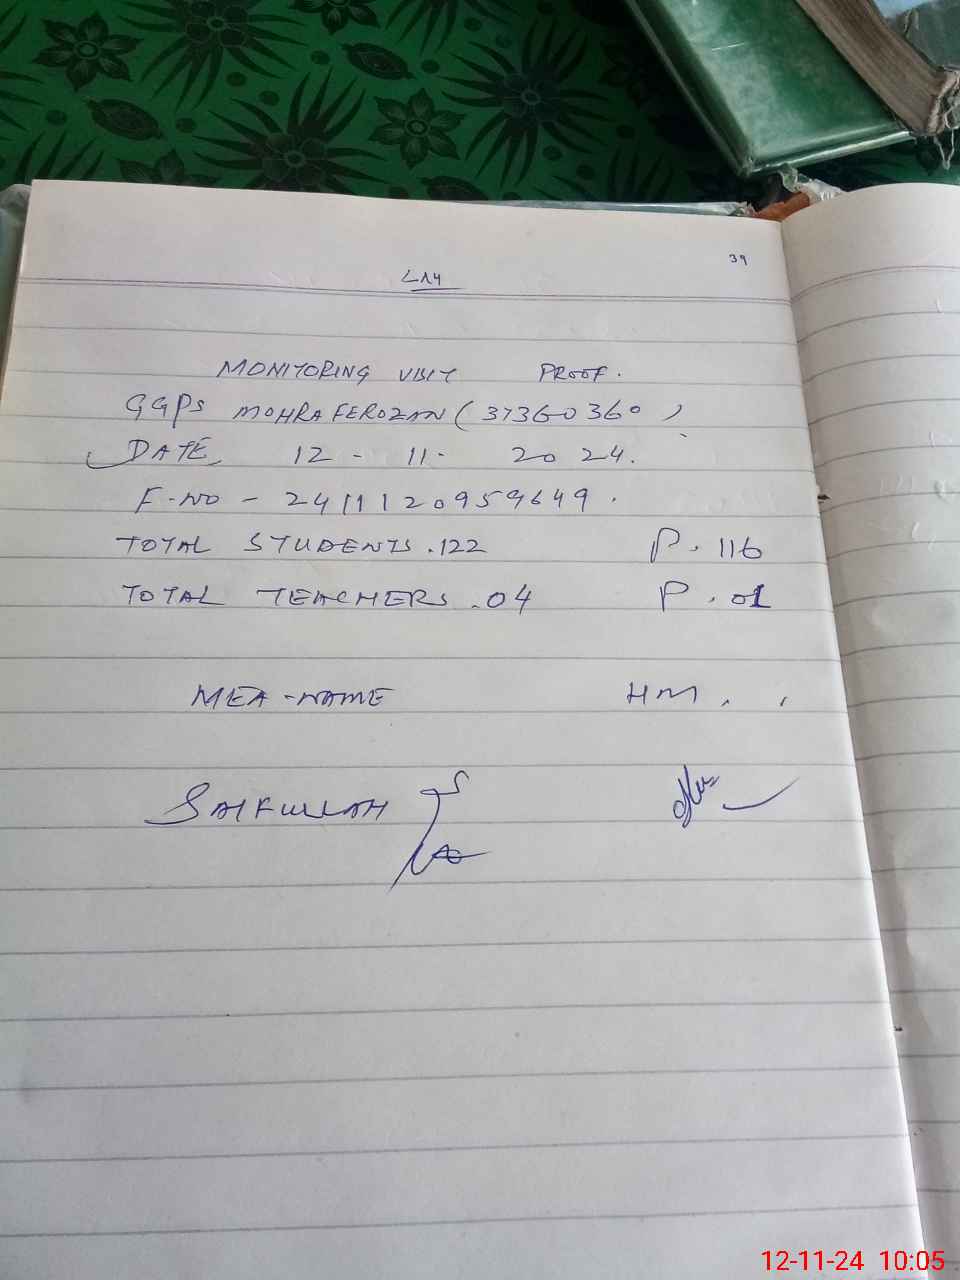 39
LAY
MONITORING VISIT PROOF.
GGPS MOHRA FEROZAN (37360360)
DATE 12 - 11 - 2024.
F-NO - 2411120959649.
TOTAL STUDENTS . 122 P. 116
TOTAL TEACHERS . 04 P. 01
MEA - NAME HM.
SAIFULLAH
12-11-24 10:05